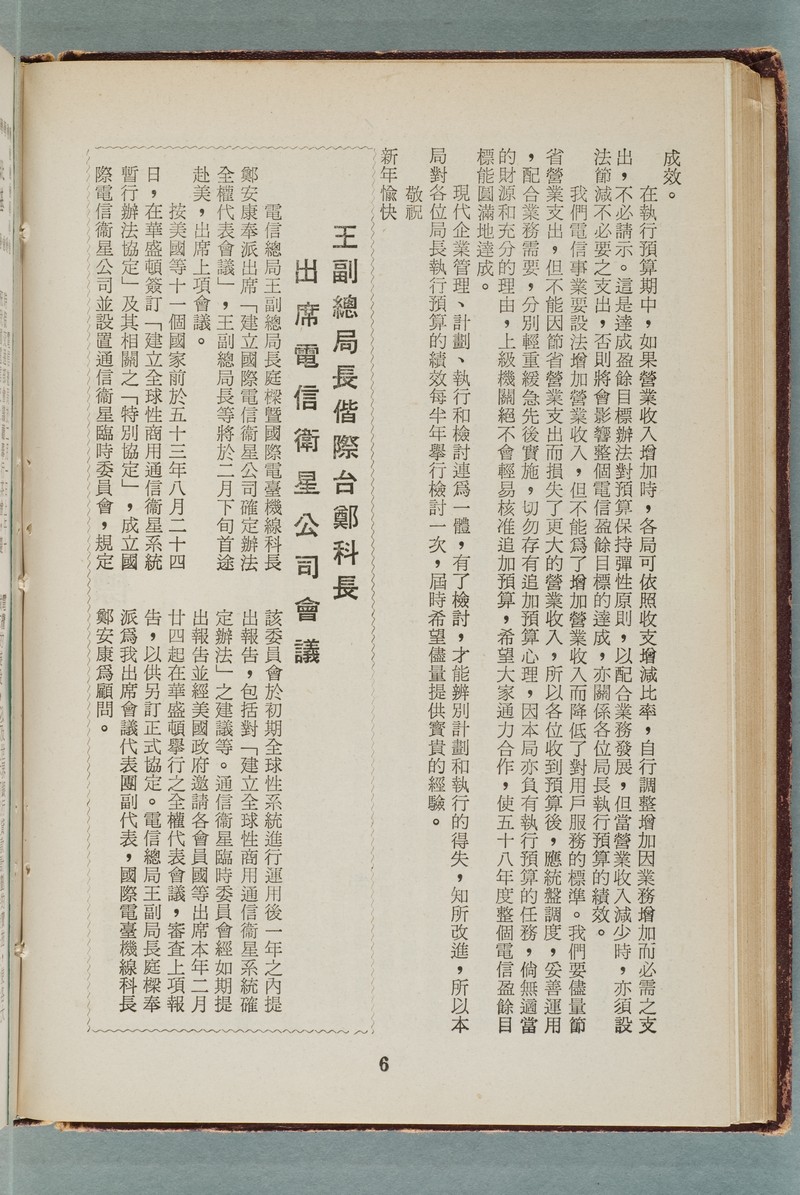 成效。
在執行預算期中，如果營業收入增加時，各局可依照收支增減比率，自行調整增加因業務增加而必需之支
出，不必請示。這是達成盈餘目標辦法對預算保持彈性原則，以配合業務發展，但當營業收入減少時，亦須設
法節減不必要之支出，否則將會影響整個電信盈餘目標的達成，亦關係各位局長執行預算的績效。
我們電信事業要設法增加營業收入，但不能爲了增加營業收入而降低了對用戶服務的標準。我們要儘量節
省營業支出，但不能因節省營業支出而損失了更大的營業收入，所以各位收到預算後，應統盤調度，妥善運用
，配合業務需要，分別輕重緩急先後實施，切勿存有追加預算心理，因本局亦負有執行預算的任務，倘無適當
的財源和充分的理由，上級機關絕不會輕易核准追加預算，希望大家通力合作，使五十八年度整個電信盈餘目
標能圓滿地達成。
現代企業管理、計劃、執行和檢討連爲一體，有了檢討，才能辨別計劃和執行的得失，知所改進，所以本
局對各位局長執行預算的績效每半年舉行檢討一次，屆時希望儘量提供寶貴的經驗。
敬祝
新年愉快
王副總局長偕際台鄭科長
出席電信衛星公司會議
電信總局王副總局長庭樑暨國際電臺機線科長
鄭安康奉派出席「建立國際電信衞星公司確定辦法
全權代表會議」，王副總局長等將於二月下旬首途
赴美，出席上項會議。
按美國等十一個國家前於五十三年八月二十四
日，在華盛頓簽訂「建立全球性商用通信衞星系統
暫行辦法協定」及其相關之「特別協定」，成立國
際電信衞星公司並設置通信衞星臨時委員會，規定
該委員會於初期全球性系統進行運用後一年之內提
出報告，包括對「建立全球性商用通信衞星系統確
定辦法」之建議等。通信衞星臨時委員會經如期提
出報告並經美國政府邀請各會員國等出席本年二月
廿四起在華盛頓舉行之全權代表會議，審查上項報
告，以供另訂正式協定。電信總局王副局長庭樑奉
派爲我出席會議代表團副代表，國際電臺機線科長
鄭安康爲顧問。
6